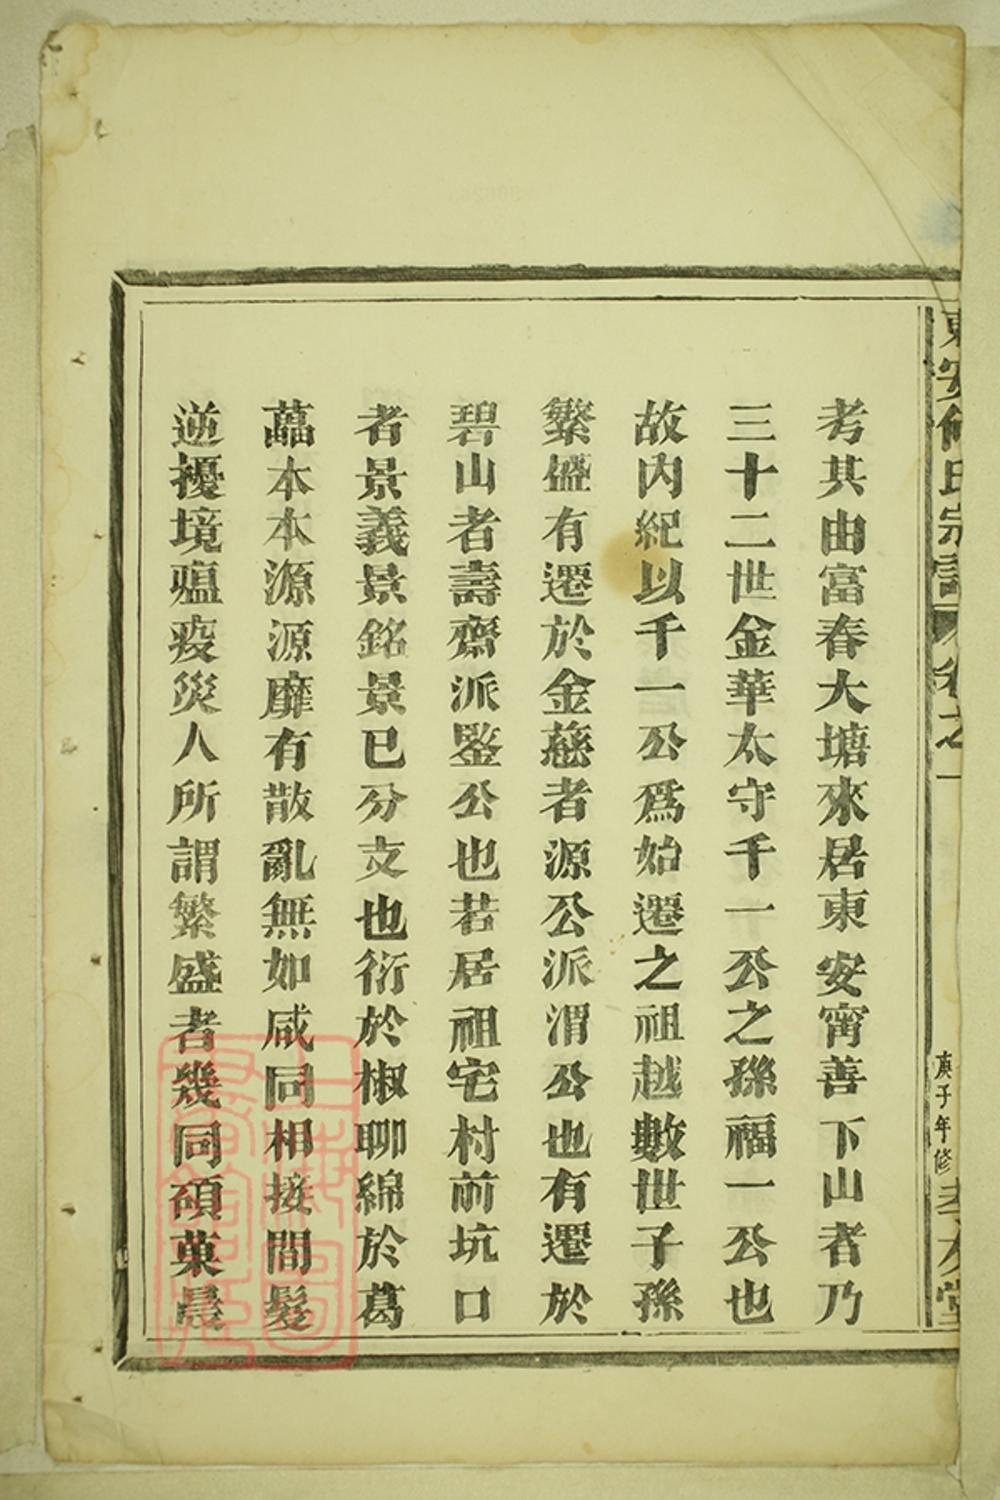 東安俞氏宗譜 卷之一 庚子年修 孝友堂
考其由富春大塘來居東安甯善下山者乃
三十二世金華太守千一公之孫福一公也
故内紀以千一公爲始遷之祖越數世子孫
繁盛有遷於金慈者源公派渭公也有遷於
碧山者壽齋派鑒公也若居祖宅村前坑口
者景義景銘景已分支也衍於椒聊綿於葛
藟本本源源靡有散亂無如咸同相接間髮
逆擾境瘟疫災人所謂繁盛者幾同碩菓晨